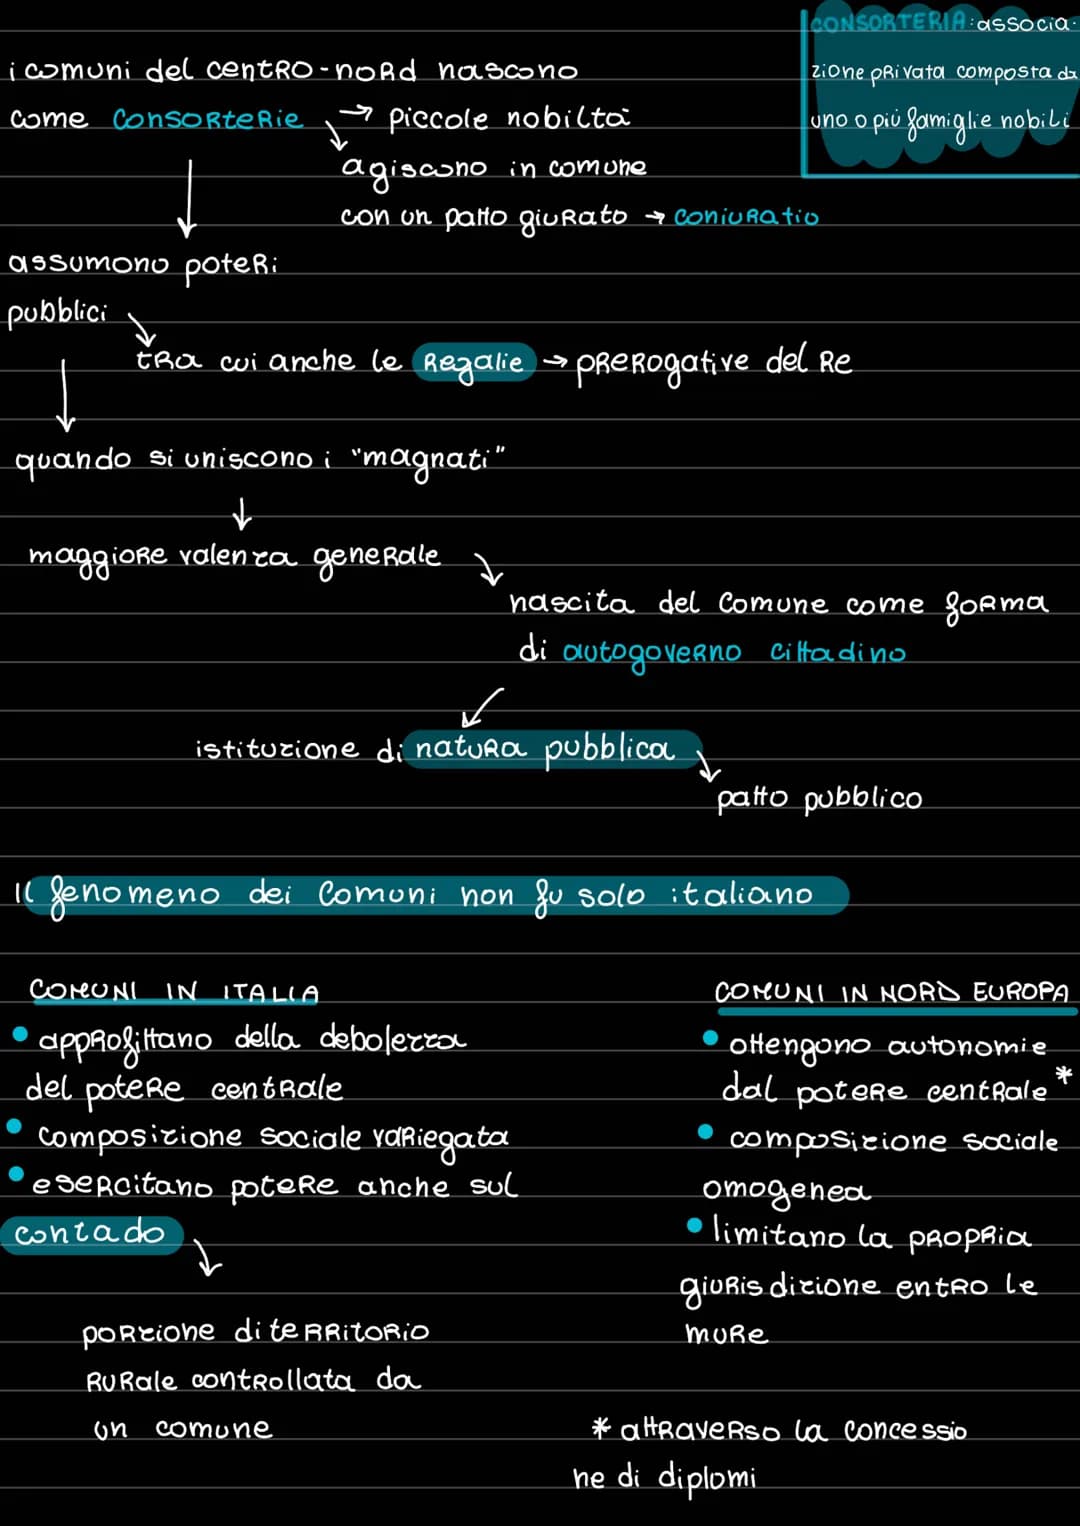 CONSORTERIA: associa-
zione privata composta da
uno o più famiglie nobili
i comuni del centro-nord nascono
come consorterie → piccole nobiltà
agiscono in comune
con un patto giurato → coniuratio
assumono poteri
pubblici
tra cui anche le Regalie → prerogative del Re
quando si uniscono i "magnati"
maggiore valenza generale
nascita del Comune come forma
di autogoverno cittadino
istituzione di natura pubblica
patto pubblico
Il fenomeno dei Comuni non fu solo italiano
COMUNI IN ITALIA
• approfittano della debolezza
del potere centrale
• composizione sociale variegata
• esercitano potere anche sul
contado
porzione di territorio
rurale controllata da
un comune
COMUNI IN NORD EUROPA
• ottengono autonomie
dal potere centrale *
• composizione sociale
omogenea
• limitano la propria
giurisdizione entro le
mure
* attraverso la concessio
ne di diplomi